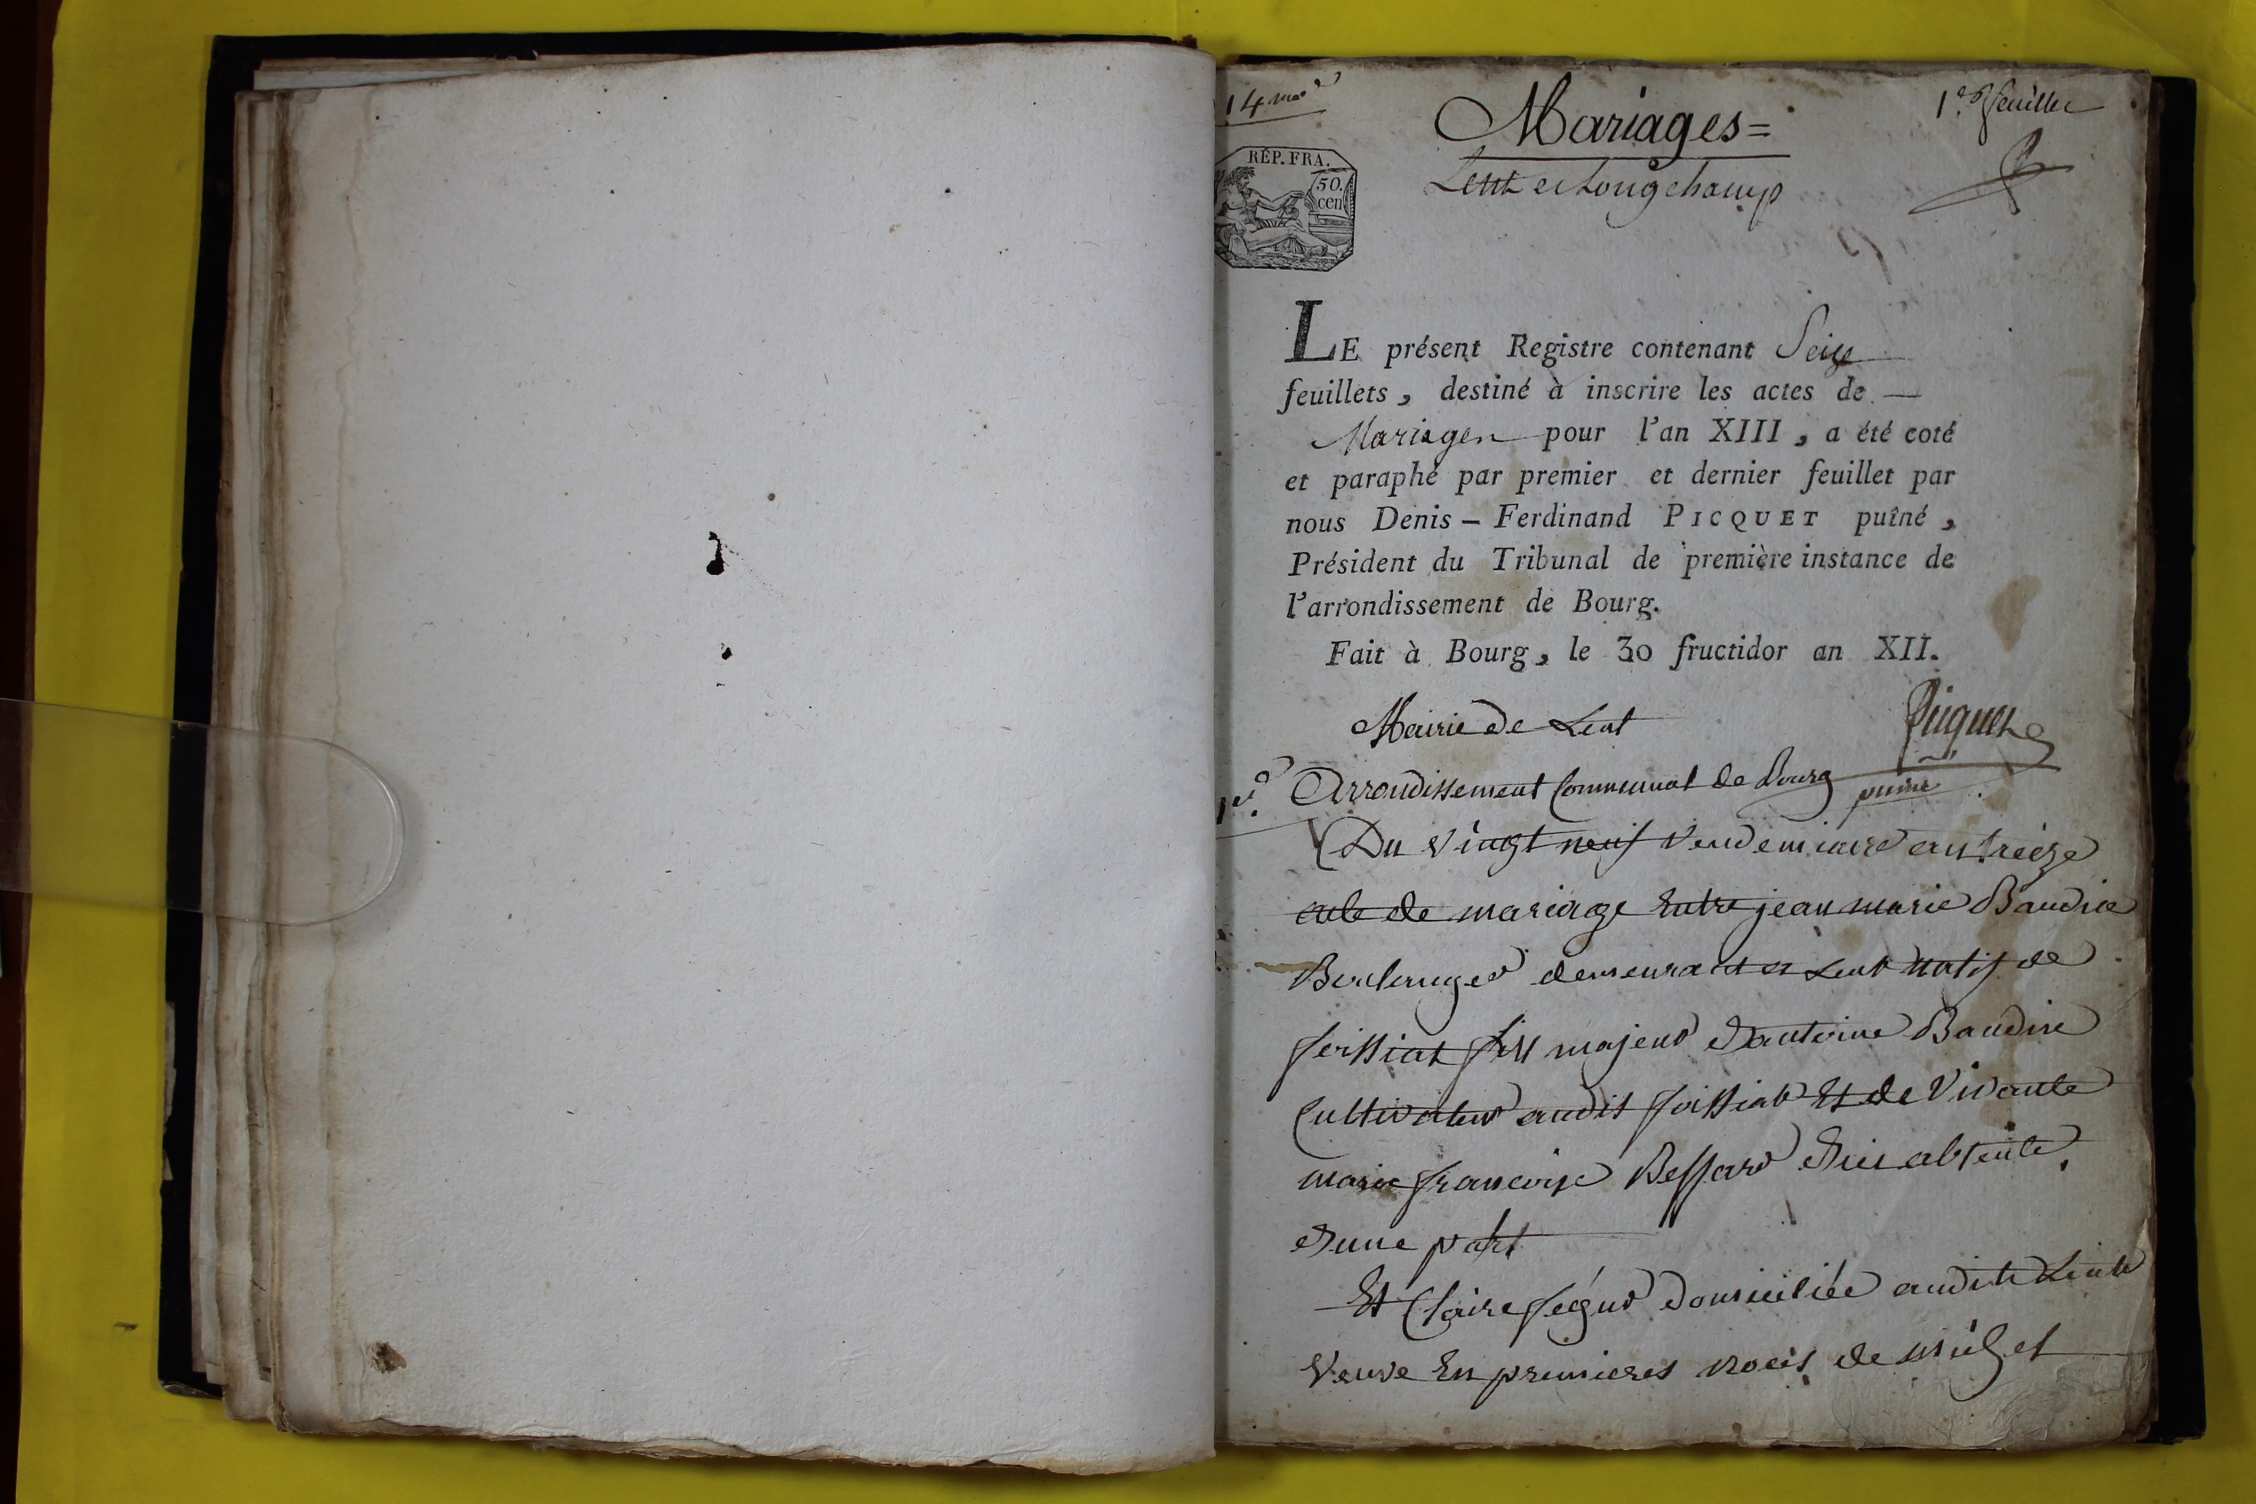 14 mar
1er feuillet
Mariages =
Lent et Longchamp
RÉP. FRA.
50.
cen
LE présent Registre contenant Seize
feuillets, destiné à inscrire les actes de —
Mariages pour l'an XIII, a été coté
et paraphé par premier et dernier feuillet par
nous Denis – Ferdinand PICQUET puîné,
Président du Tribunal de première instance de
l'arrondissement de Bourg.
Fait à Bourg, le 30 fructidor an XII.
Mairie de Lent
Picquet
puiné
1er. Arrondissement Communal de Bourg
Du vingt neuf vendemiaire an treize
acte de mariage Entre jean marie Baudin
Boulanger demeurant a Lent natif de
foissiat fils majeur d'antoine Baudin
Cultivateur audit foissiat Et de vivante
marie francoise Bessard d'ici absente,
d'une part
Et Claire ségud domiciliée audit Lent
veuve En premieres noces de michel